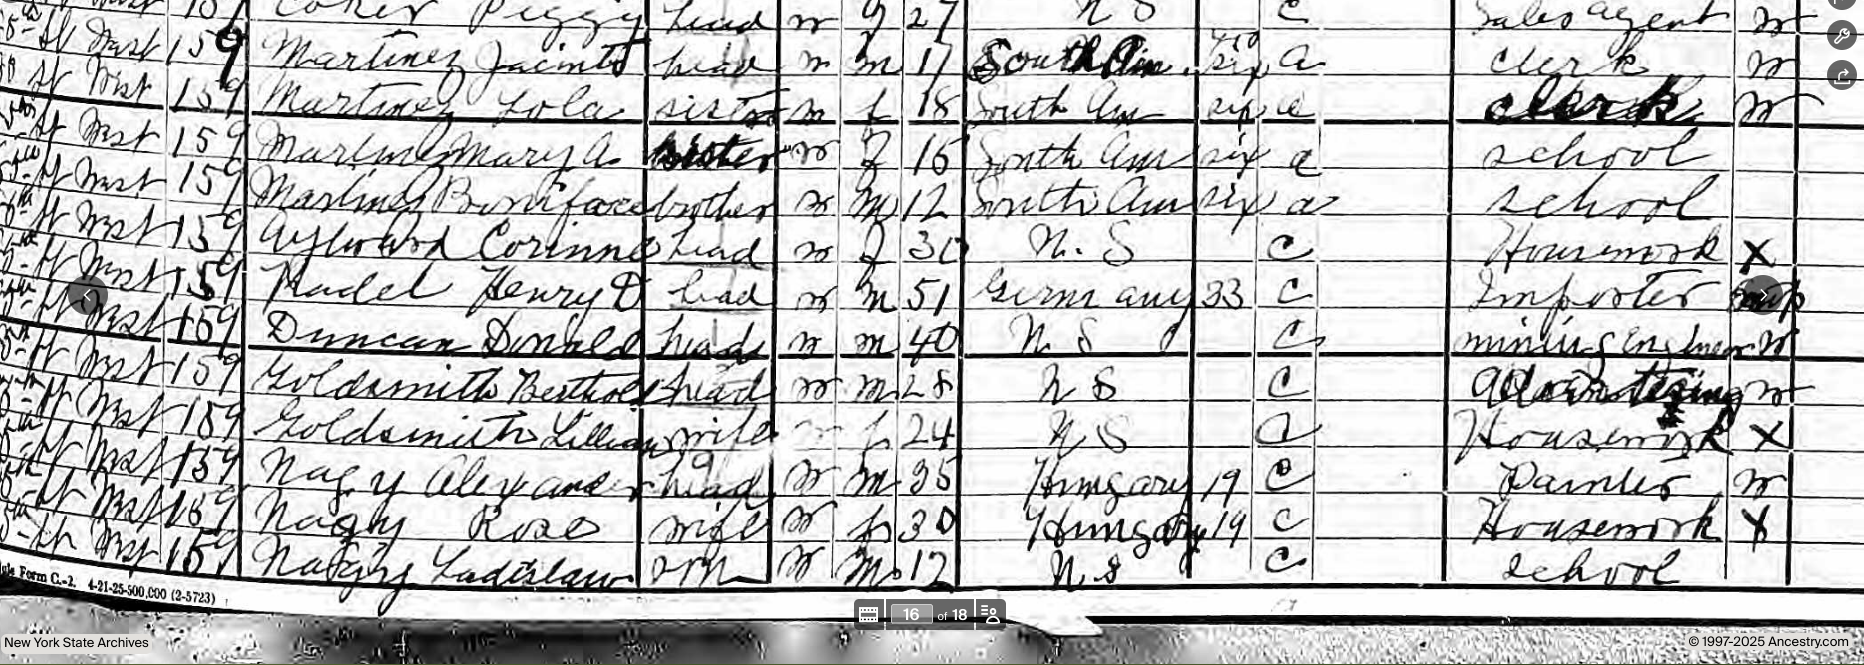 Coker Peggy head w f 27 U S C Sales agent W
St West 159 Martinez Jacinto head w m 17 South Am. six a clerk W
St West 159 Martinez Lola sister w f 18 South Am six a clerk W
St West 159 Martinez Mary A. sister w f 15 South Am six a school
St West 159 Martinez Boniface brother w m 12 South Am six a school
St West 159 Aylward Corinne head w f 30 U. S C Housework X
St West 159 Henry D head w m 51 Germany 33 C Importer
St West 159 Duncan Donald head w m 40 U. S C mining Engineer W
St West 159 Goldsmith Berthold head w m 28 U S C Advertising W
St West 159 Goldsmith Lillian wife w f 24 U S C Housework X
St West 159 Nagy Alexander head w m 35 Hungary 19 C Painter W
St West 159 Nagy Rose wife w f 30 Hungary 19 C Housework X
St West 159 Nagy Ladislaw son w m 12 U. S C school
Form C.-2. 4-21-25-500,000 (2-5723)
16 of 18
New York State Archives
© 1997-2025 Ancestry.com